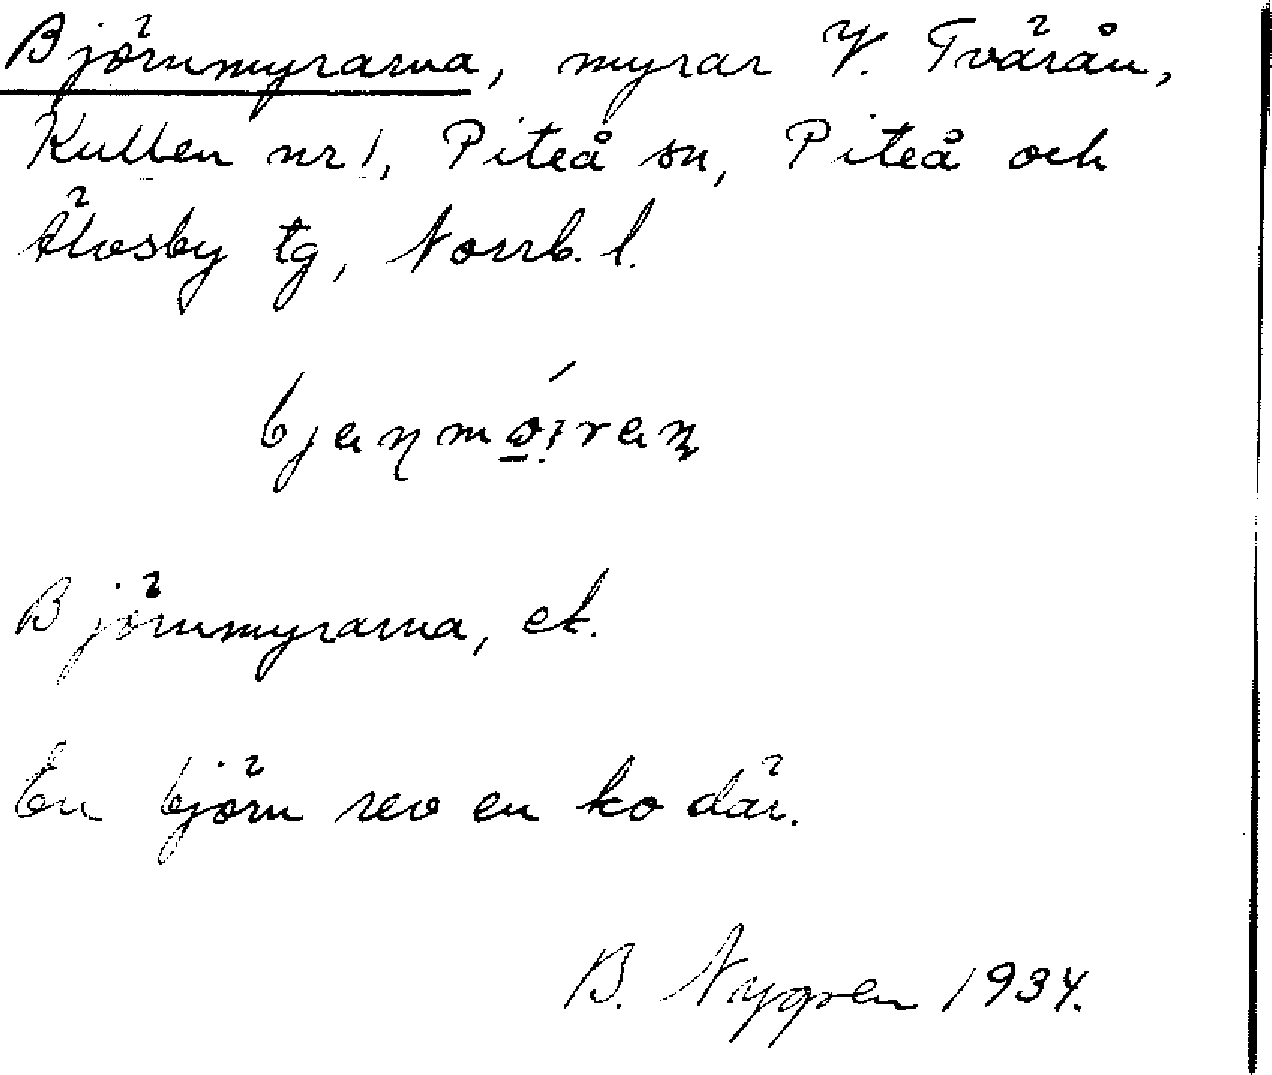 Björnmyrarna, myrar V. Tvärån,
Kullen nr 1, Piteå sn, Piteå och
Älvsby tg, Norrb. l.
Björnmyrarna, ek.
En björn rev en ko där.
B. Nygren 1934.